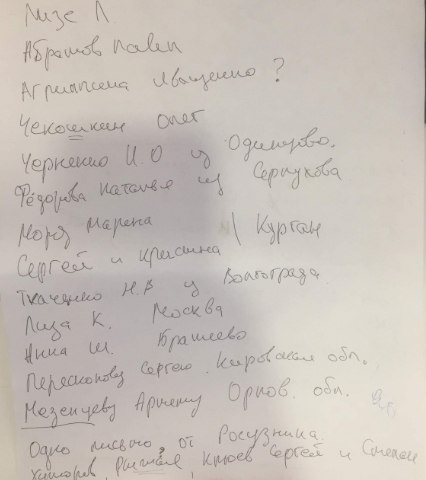 Лизе Л
Абрамов Павел
Агриппина Иващенко ?
Чекошкин Олег
Черненко И.О из Одинцово.
Фёдорова Наталья из Серпухова
Мороз Марена
Сергей и Кристина | Курган
Ткаченко Н.В из Волгограда
Лиза К. Москва
Анна Ш. Братеево
Перескокову Сергею. Кировская обл.
Мезенцеву Артему Орлов. обл.
Одно письмо, от Росузника
Сергей и